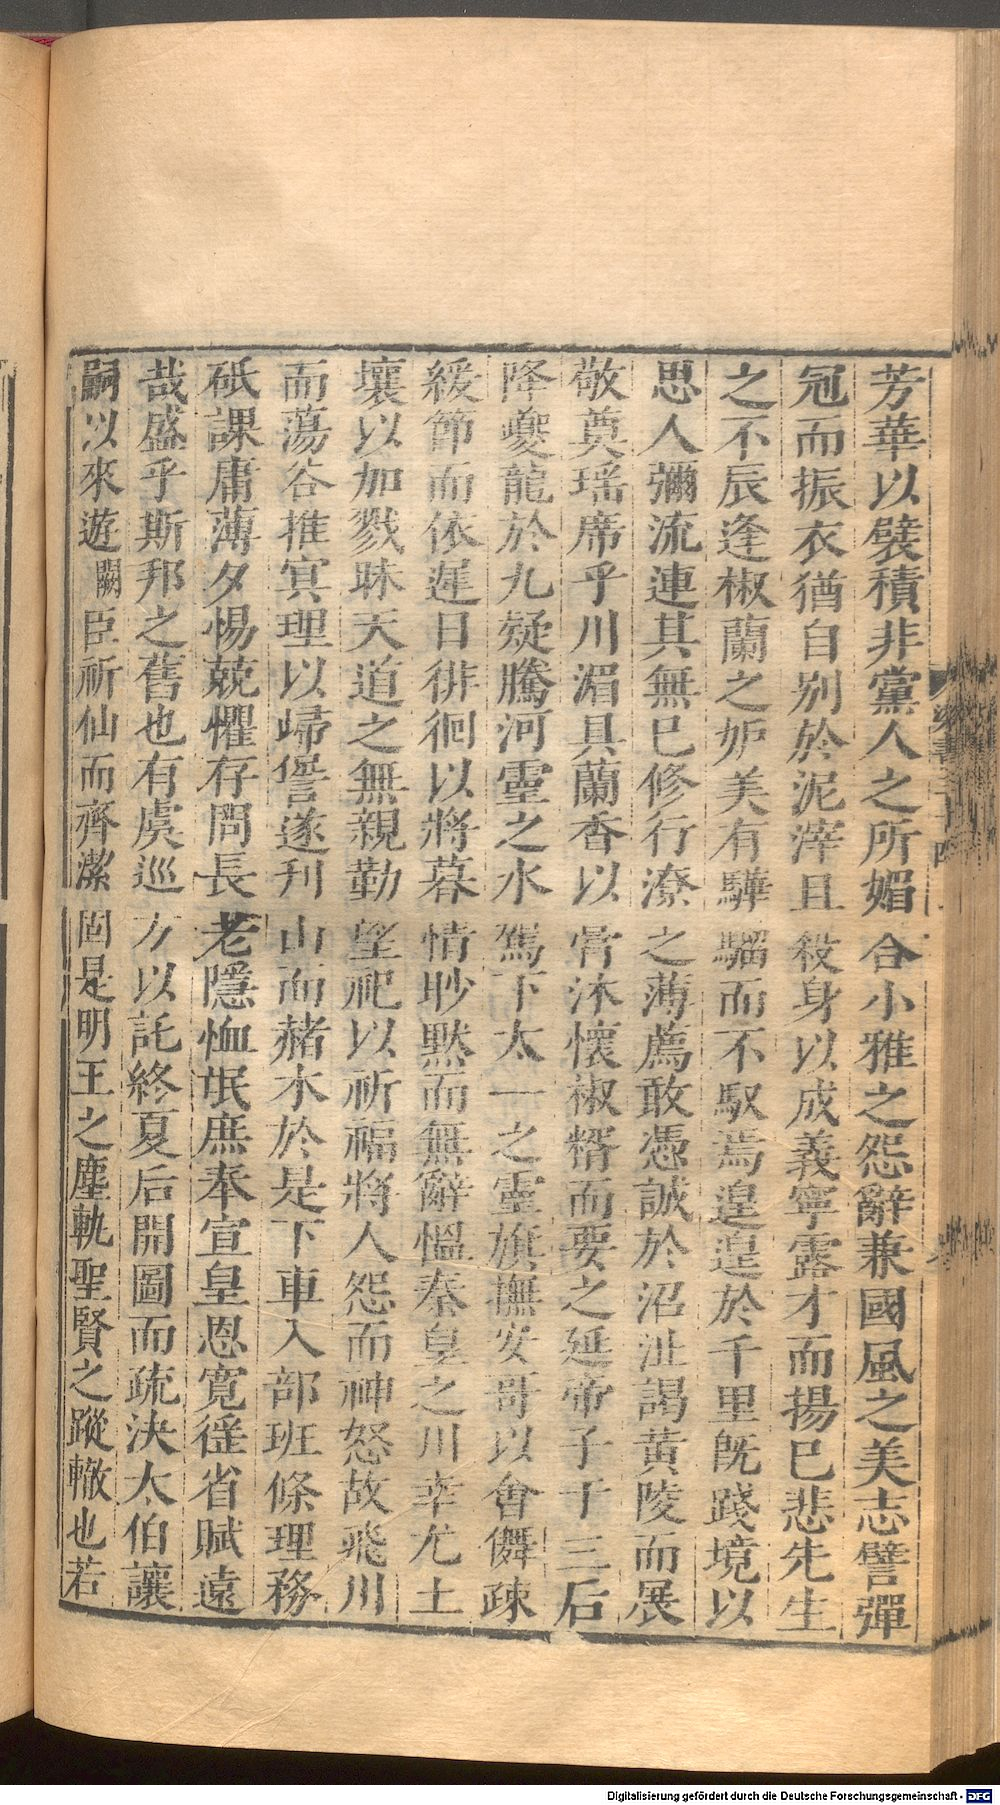 芳華以襞積非黨人之所媚合小雅之怨辭兼國風之美志譬彈
冠而振衣猶自别於泥滓且殺身以成義寧露才而揚已悲先生
之不辰逢椒蘭之妒美有驊騮而不馭焉遑遑於千里旣踐境以
思人彌流連其無已修行潦之薄薦敢憑誠於沼沚謁黄陵而展
敬奠瑶席乎川湄具蘭香以膏沐懷椒糈而要之延帝子于三后
降夔龍於九疑騰河靈之水駕下太一之靈旗撫安哥以會儛疎
緩節而依遲日徘徊以將暮情眇默而無辭愠秦皇之川幸尤土
壤以加戮昧天道之無親勤望祀以祈福將人怨而神怒故飛川
而蕩谷推冥理以歸諐遂刋山而赭木於是下車入部班條理務
砥課庸薄夕惕兢懼存問長老隱恤氓庶奉宣皇恩寛徭省賦遠
哉盛乎斯邦之舊也有虞巡方以託終夏后開圖而疏決太伯讓
嗣以來遊闕臣祈仙而齊潔固是明王之塵軌聖賢之蹤轍也若
梁書三十四
Digitalisierung gefördert durch die Deutsche Forschungsgemeinschaft - DFG